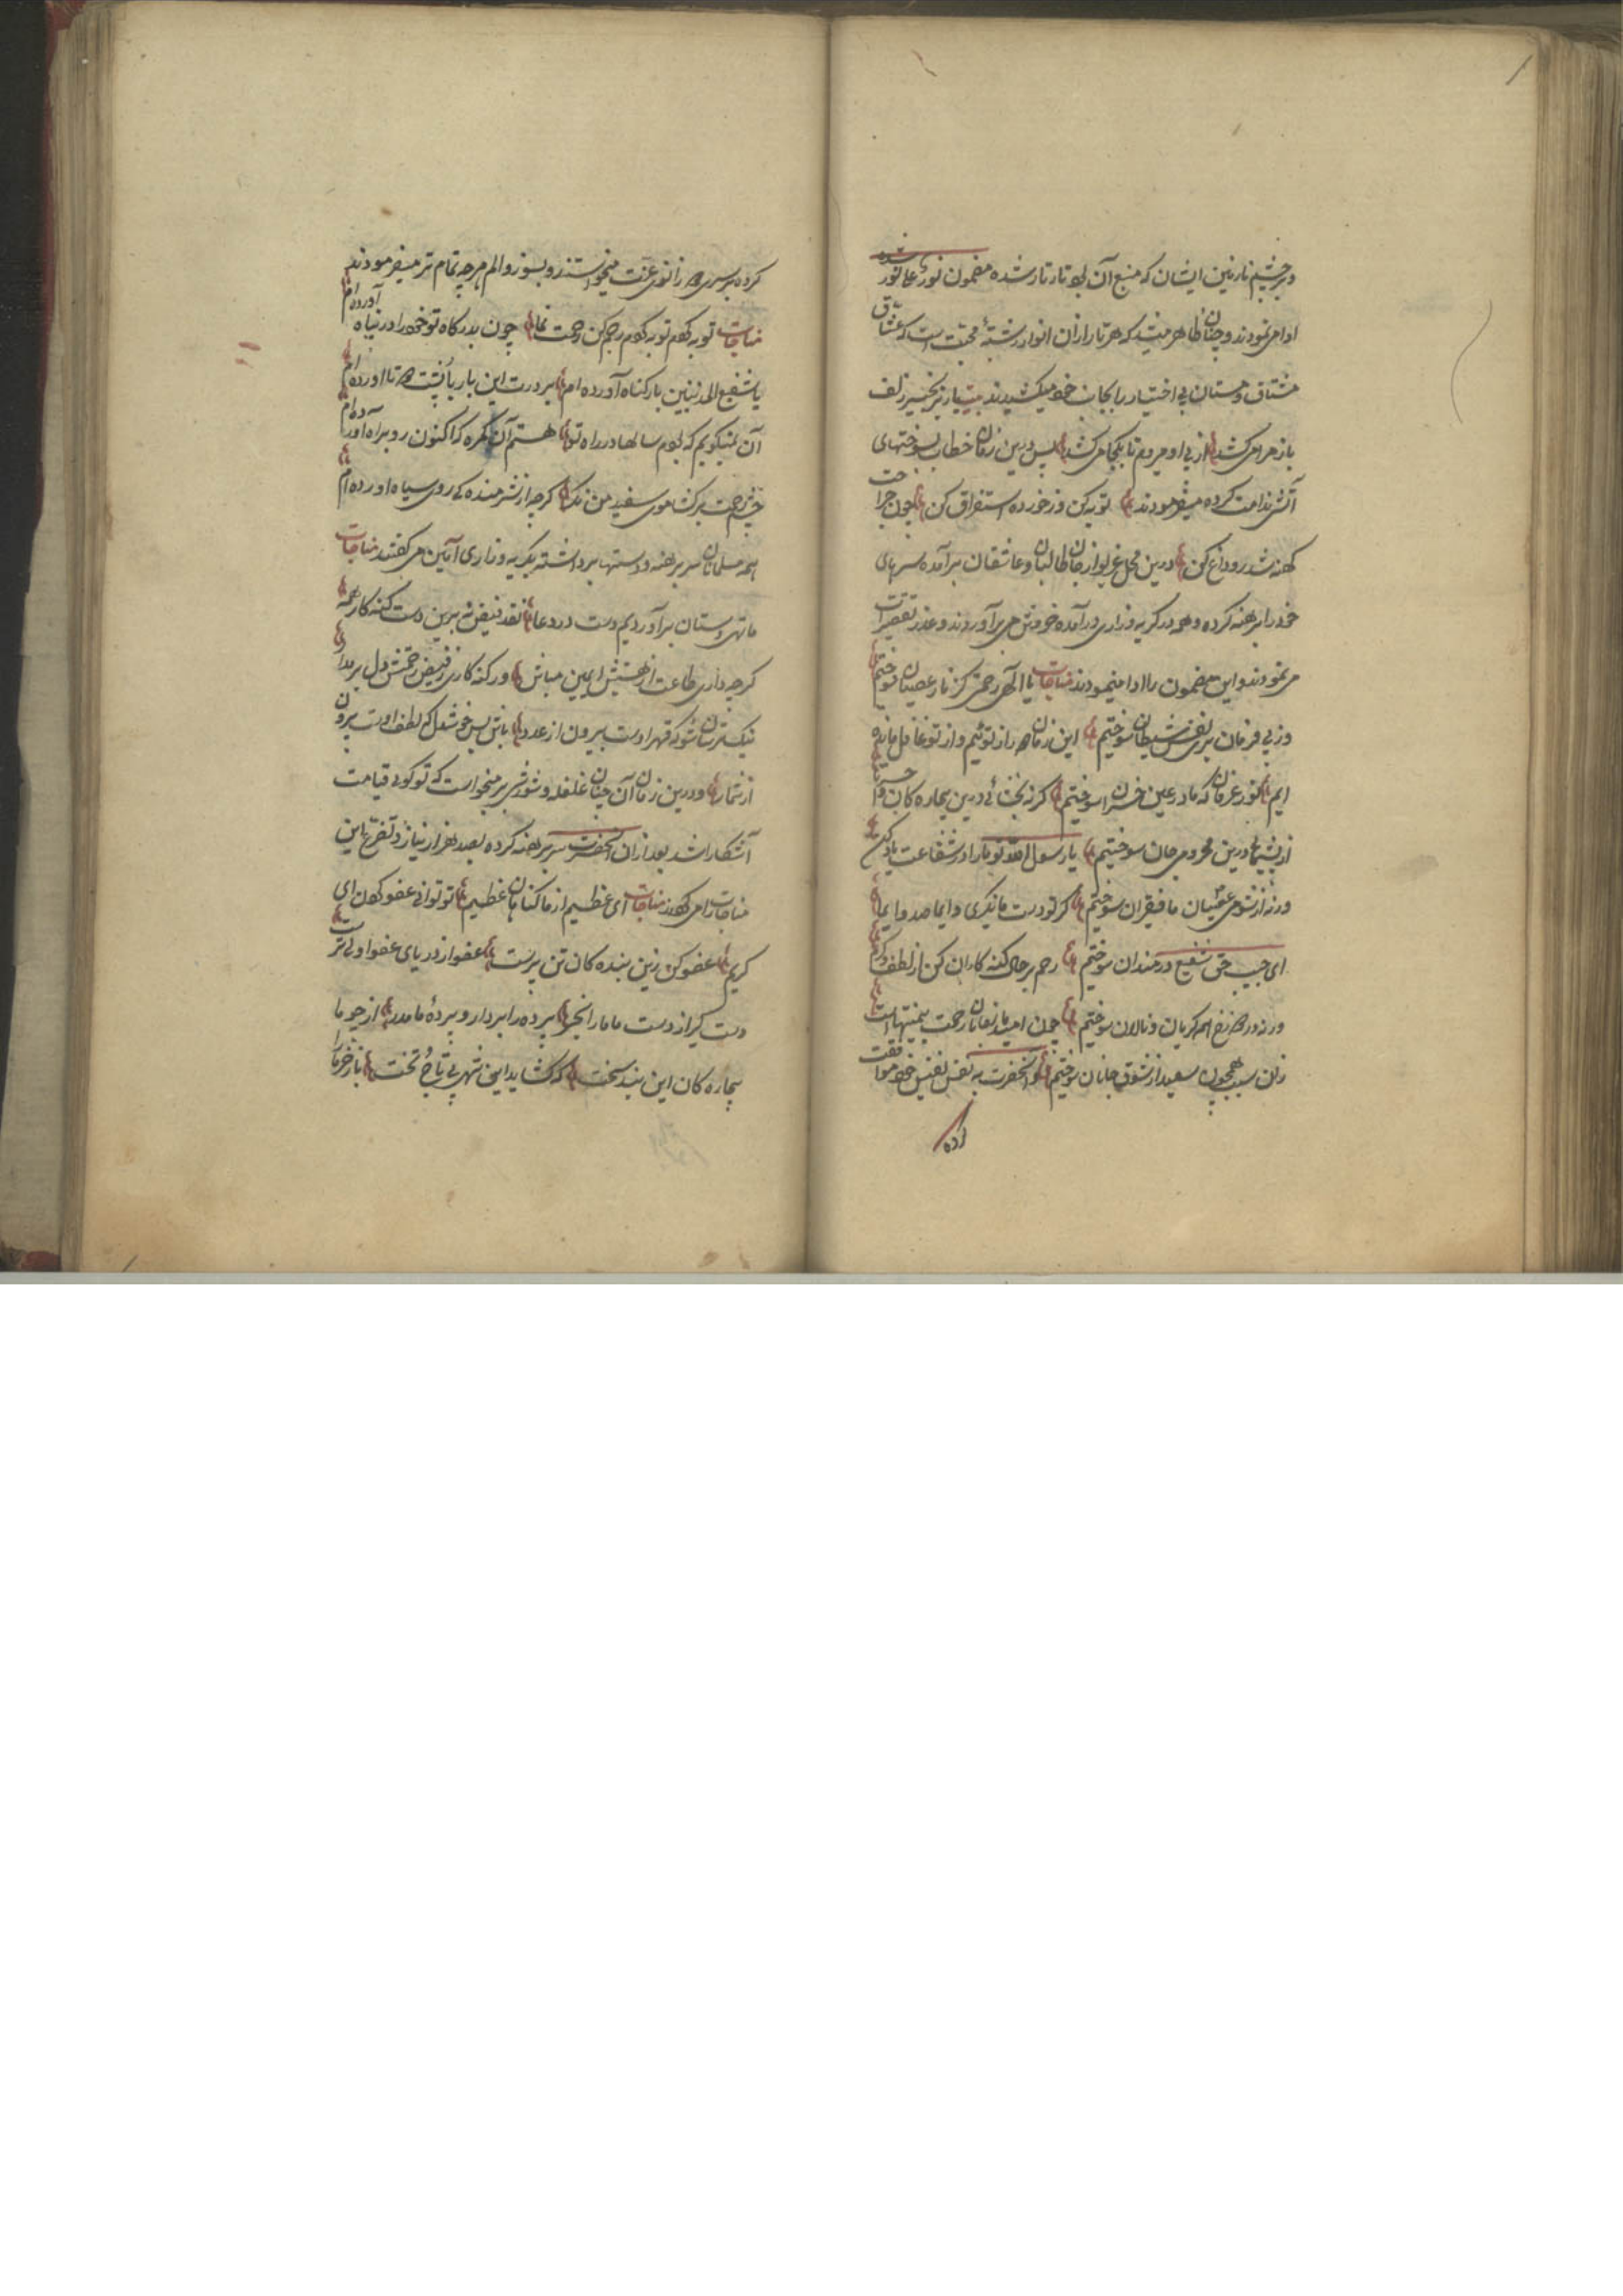 و بر چشم نازنین ایشان که منبع آن بود تار تار شده مضمون نور علی نور شده
ادا می نمودند و چنان ظاهر میشد که هر تار از آن انوار رشتهٔ محبت است که عشاق
مشتاق و مستان بی اختیار را بجانب خود میکشیدند بیت یار زنجیر زلف
باز مرا می کشد از پی او میروم تا بکجا می کشد پس درین زمان خطاب بسوختهای
آتش ندامت کرده میفرمودند توبه کن وز خورده استفراق کن چون جراحت
کهنه شد رو داغ کن درین محل غریو از جان طالبان و عاشقان برآمده سرهای
خود را برهنه کرده و همه در گریه و زاری درآمده خروش می برآوردند و عذر تقصیرات
می نمودند و این مضمون را ادا مینمودند مناجات یا الهی رحمتی کز نار عصیان سوختیم
وز پی فرمان بری نفس و شیطان سوختیم این زمان از توئیم و از تو غافل مانده
ایم نور عرفان که ما در عین خسران سوختیم گر نه بخشائی درین بیچاره کان وا حسرتا
از پشیمانی درین محرومی جان سوختیم یا رسول الله تو ما را در شفاعت یاد کن
ورنه از شومی عصیان ما فقیران سوختیم گر تو دست ما نگیری وایما صد وایما
ای حبیب حق شفیع دردمندان سوختیم رحم بر حال گنه کاران کن از لطف و کرم
ورنه در دوزخ همه گریان و نالان سوختیم چون امید یار نعمانا رحمت بی منتهاست
زان سبب همچون سعید از شوق جانان سوختیم و آنحضرت به نفس نفیس خود موافقت
کرده
کرده بر سر دو زانوی عزت میخواستند و بسوز و الم هرچه تمام تر میفرمودند
مناجات توبه کردم توبه کردم رحم کن رحمت نما چون بدرگاه تو خود را در پناه آورده ام
یا شفیع المذنبین بار گناه آورده ام بر درت این بار با پشت دو تا آورده ام
آن نمیگویم که بودم سالها در راه تو هستم آن گمره که اکنون رو براه آورده ام
چشم رحمت برگشا موی سفید من نگر گرچه از شرمنده گی روی سیاه آورده ام
همه مسلمانان سر برهنه و دستها برداشته بگریه و زاری آمین می گفتند مناجات
ما تهی دستان برآوردیم دست در دعا نقد فیض نه برین دست گنه کار همه
گرچه داری طاعت از هیبتش ایمن مباش ور گنه کاری ز فیض رحمتش دل بر مدار
نیک ترسان شو که قهر اوست بیرون از عدد باش بس خوشدل که لطف اوست بیرون
از شمار و درین زمان آن چنان غلغله و شورش برمیخواست که تو گوئی قیامت
آشکارا شد بعد از آن آنحضرت سر برهنه کرده بصد هزار نیاز و تضرع این
مناجات را می کردند مناجات ای عظیم از ما گناهان عظیم تو توانی عفو کردن ای
کریم عفو کن زین بنده کان تن پرست عفو از دریای عفو اولی تر است
دست گیر از دست ما ما را بخر پرده را بردار و پردهٔ ما مدر از چو ما
بیچاره کان این بند سخت که گشاید ای شه بی تاج و تخت باز خر ما را